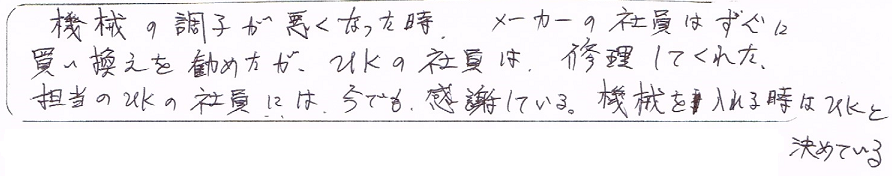 機械の調子が悪くなった時、メーカーの社員はすぐに
買い換えを勧めたが、UKの社員は、修理してくれた、
担当のUKの社員には、今でも、感謝している。機械を入れる時はUKと
決めている